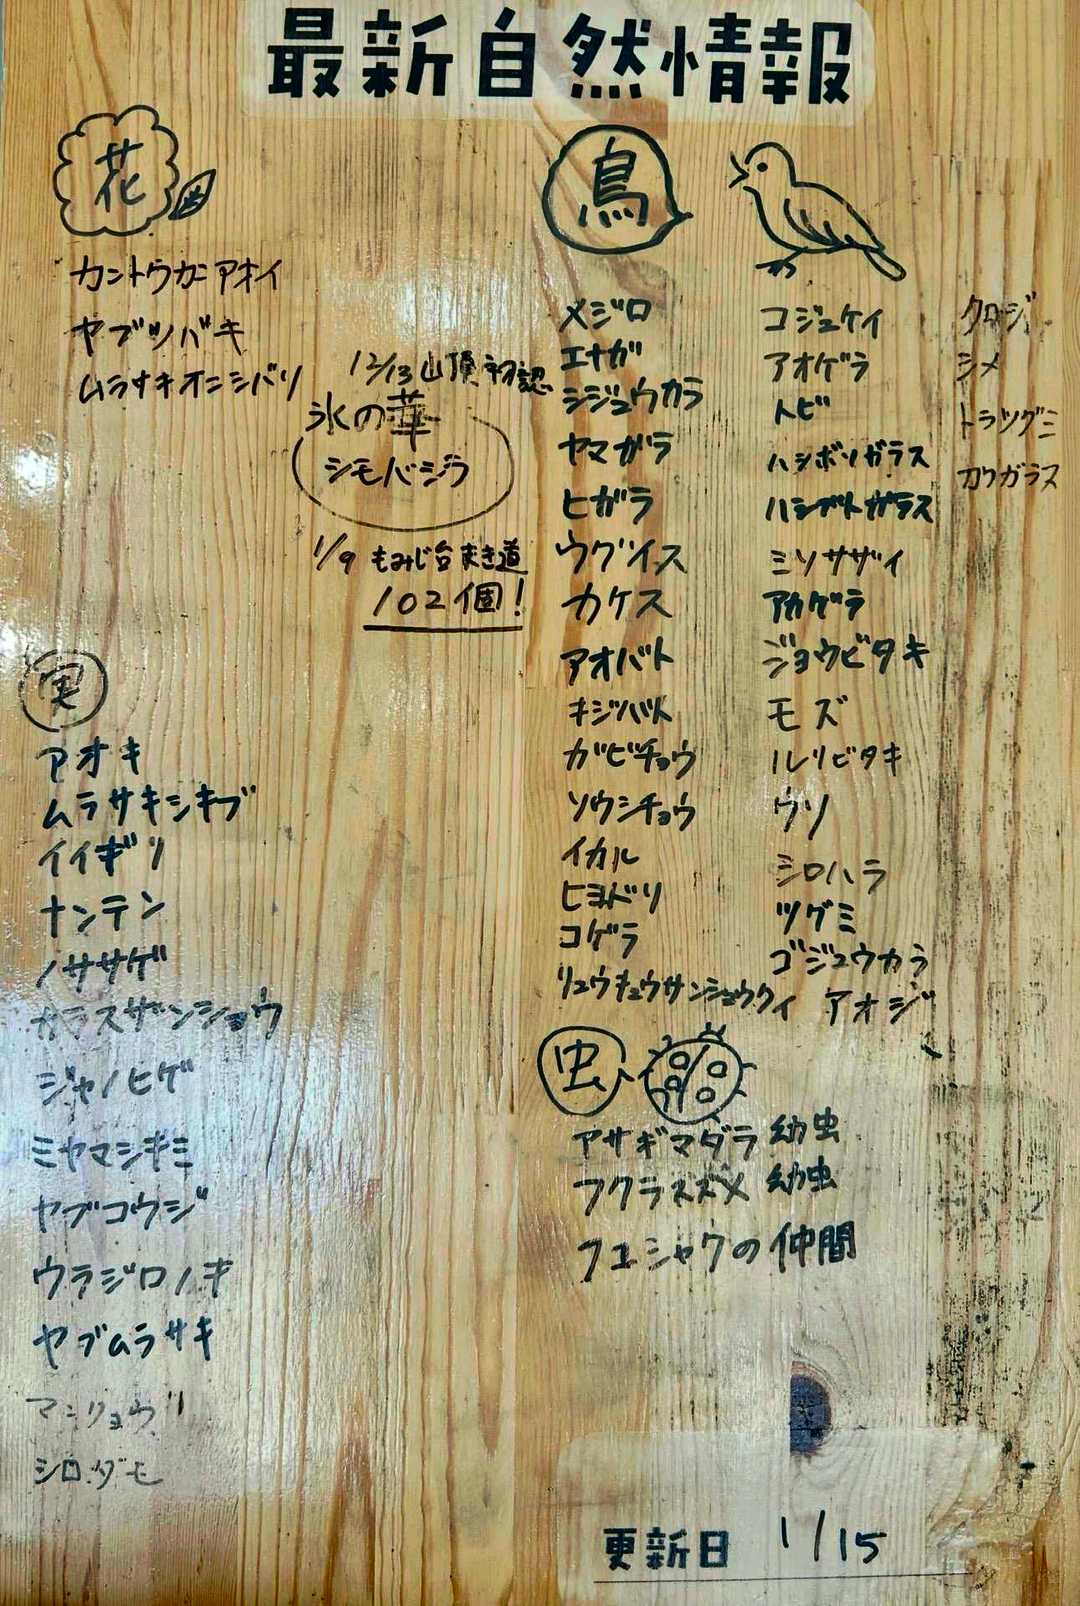 最新自然情報
花
カントウカンアオイ
ヤブツバキ
ムラサキオニシバリ
12/13 山頂初認
氷の華
シモバシラ
1/9 もみじ台まき道
102個!
実
アオキ
ムラサキシキブ
イイギリ
ナンテン
ノササゲ
カラスザンショウ
ジャノヒゲ
ミヤマシキミ
ヤブコウジ
ウラジロノキ
ヤブムラサキ
シロダモ
鳥
メジロ
エナガ
シジュウカラ
ヤマガラ
ヒガラ
ウグイス
カケス
アオバト
キジバト
ガビチョウ
ソウシチョウ
イカル
ヒヨドリ
コゲラ
リュウキュウサンショウクイ
コジュケイ
アオゲラ
トビ
ハシボソガラス
ハシブトガラス
ミソサザイ
アカゲラ
ジョウビタキ
モズ
ルリビタキ
ウソ
シロハラ
ツグミ
ゴジュウカラ
アオジ
クロジ
シメ
トラツグミ
カワガラス
虫
アサギマダラ 幼虫
フクラスズメ 幼虫
フユシャクの仲間
更新日 1/15